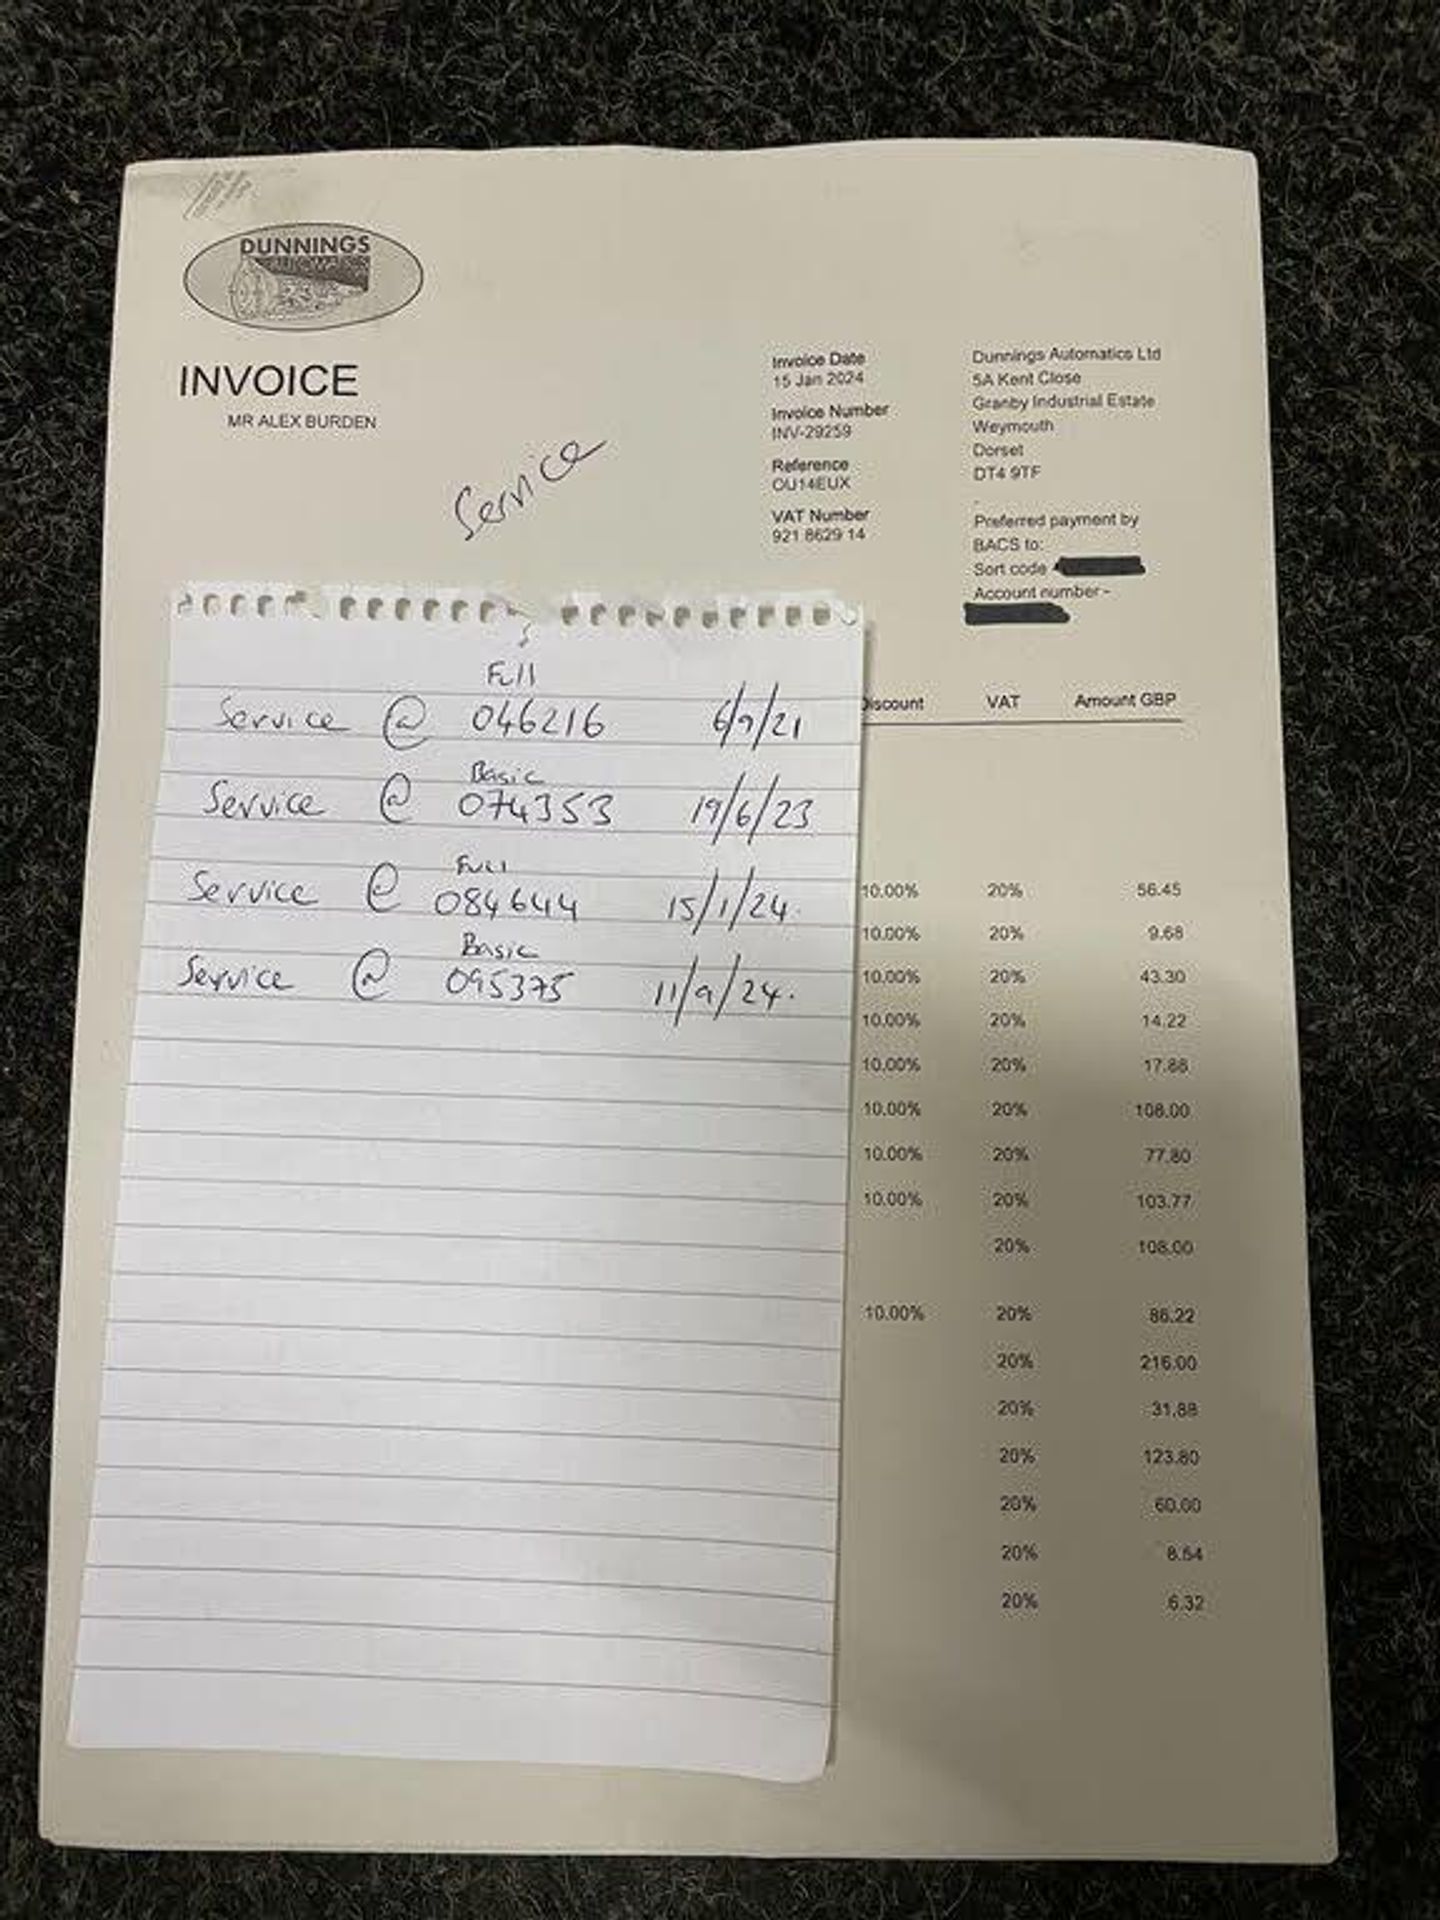 DUNNINGS
INVOICE
MR ALEX BURDEN
Service
Invoice Date
15 Jan 2024
Invoice Number
INV-29259
Reference
OU14EUX
VAT Number
921 8629 14
Dunnings Automatics Ltd
5A Kent Close
Granby Industrial Estate
Weymouth
Dorset
DT4 9TF
-
Preferred payment by
BACS to:
Sort code
Account number -
Full
Service @ 046216 6/9/21
Basic
Service @ 074353 19/6/23
Full
Service @ 084644 15/1/24.
Basic
Service @ 095375 11/9/24.
Discount VAT Amount GBP
10.00% 20% 56.45
10.00% 20% 9.68
10.00% 20% 43.30
10.00% 20% 14.22
10.00% 20% 17.88
10.00% 20% 108.00
10.00% 20% 77.80
10.00% 20% 103.77
20% 108.00
10.00% 20% 86.22
20% 216.00
20% 31.88
20% 123.80
20% 60.00
20% 8.54
20% 6.32